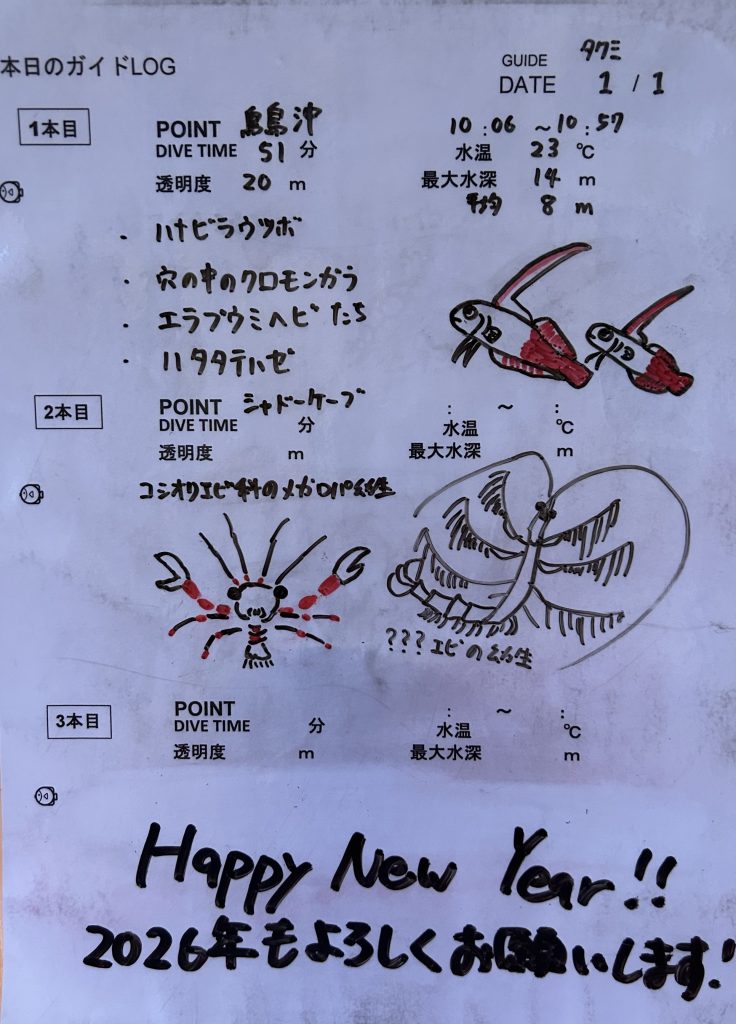 本日のガイドLOG
GUIDE タクミ
DATE 1 / 1
1本目
POINT 鳥島沖 10:06 ~10:57
DIVE TIME 51 分 水温 23 ℃
透明度 20 m 最大水深 14 m
平均 8 m
・ハナビラウツボ
・穴の中のクロモンガラ
・エラブウミヘビたち
・ハタタテハゼ
2本目
POINT シャドーケーブ : ~ :
DIVE TIME 分 水温 ℃
透明度 m 最大水深 m
コシオリエビ科のメガロパ幼生
???エビの幼生
3本目
POINT : ~ :
DIVE TIME 分 水温 ℃
透明度 m 最大水深 m
Happy New Year!!
2026年もよろしくお願いします!